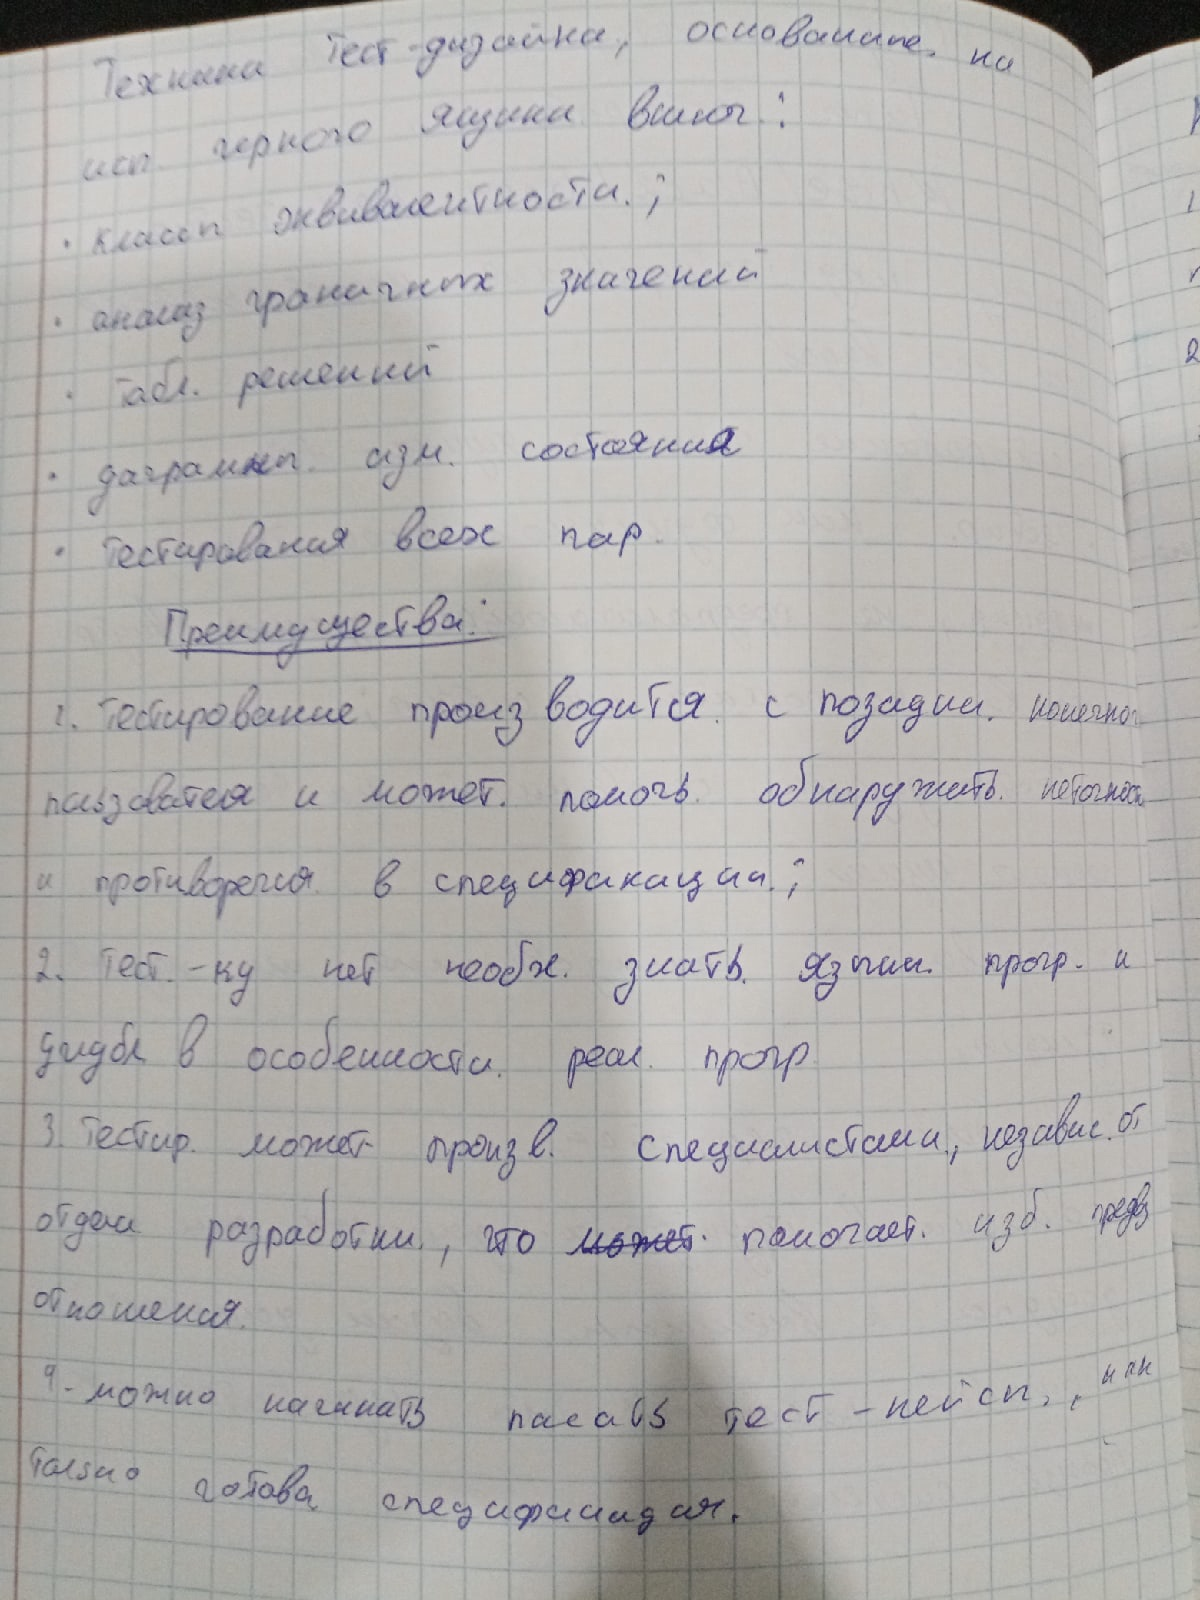 Техники тест-дизайна, основание. на
исп. черного ящика включ.:
· классы эквивалентности.;
· анализ граничных значений
· табл. решений
· даграммы. изм. состояния
· тестирования всех пар.
Преимущества:
1. тестирование производится. с позадии. конечног
пользователя и может. помочь. обнаружить. неточнос
и противоречия. в спецификации.;
2. тест.-ку нет необх. знать. языки. прогр. и
в особенности. реал. прогр.
3. тестир. может произв. специалистами., независ. от
отдела разработки., что может. помогает. изб. предвз
отношения.
4. можно начинать писать тест-кейсы., как
только готова спецификация.